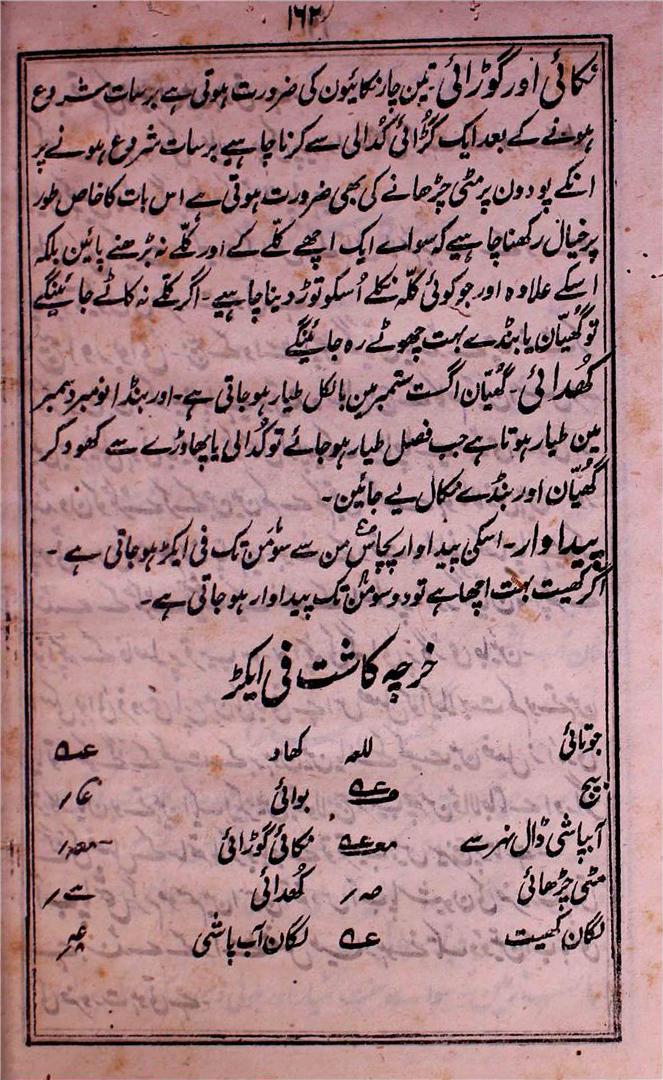 ۱۶۲
نکائی اور گوڑائی۔ تین چار نکائیون کی ضرورت ہوتی ہے برسات شروع
ہونے کے بعد ایک گڑائی کدالی سے کرنا چاہیے برسات شروع ہونے پر
انکے پودون پر مٹی چڑھانے کی بھی ضرورت ہوتی ہے اس بات کا خاص طور
پر خیال رکھنا چاہیے کہ سواے ایک اچھے کلّے کے اور کلّے نہ بڑھنے پائین بلکہ
اسکے علاوہ اور جو کوئی کلّہ نکلے اُسکو توڑ دینا چاہیے۔ اگر کلّے نہ کاٹے جائینگے
تو گھیّان یا بنڈے بہت چھوٹے رہ جائینگے
کھدائی۔ گھیّان اگست ستمبر مین بالکل طیار ہو جاتی ہے۔ اور بنڈا نومبر دسمبر
مین طیار ہوتا ہے جب فصل طیار ہو جائے تو کدالی یا پھاوڑے سے کھود کر
گھیّان اور بنڈے نکال لیے جائین۔
پیداوار۔ اسکی پیداوار پچاس من سے سو من تک فی ایکڑ ہو جاتی ہے۔
اگر کھیت بہت اچھا ہے تو دو سو من تک پیداوار ہو جاتی ہے۔
خرچہ کاشت فی ایکڑ
جوتائی کھاد
بیج بوائی
آبپاشی ڈال نہر سے نکائی گوڑائی
مٹی چڑھائی کھدائی
لگان کھیت لگان آب پاشی